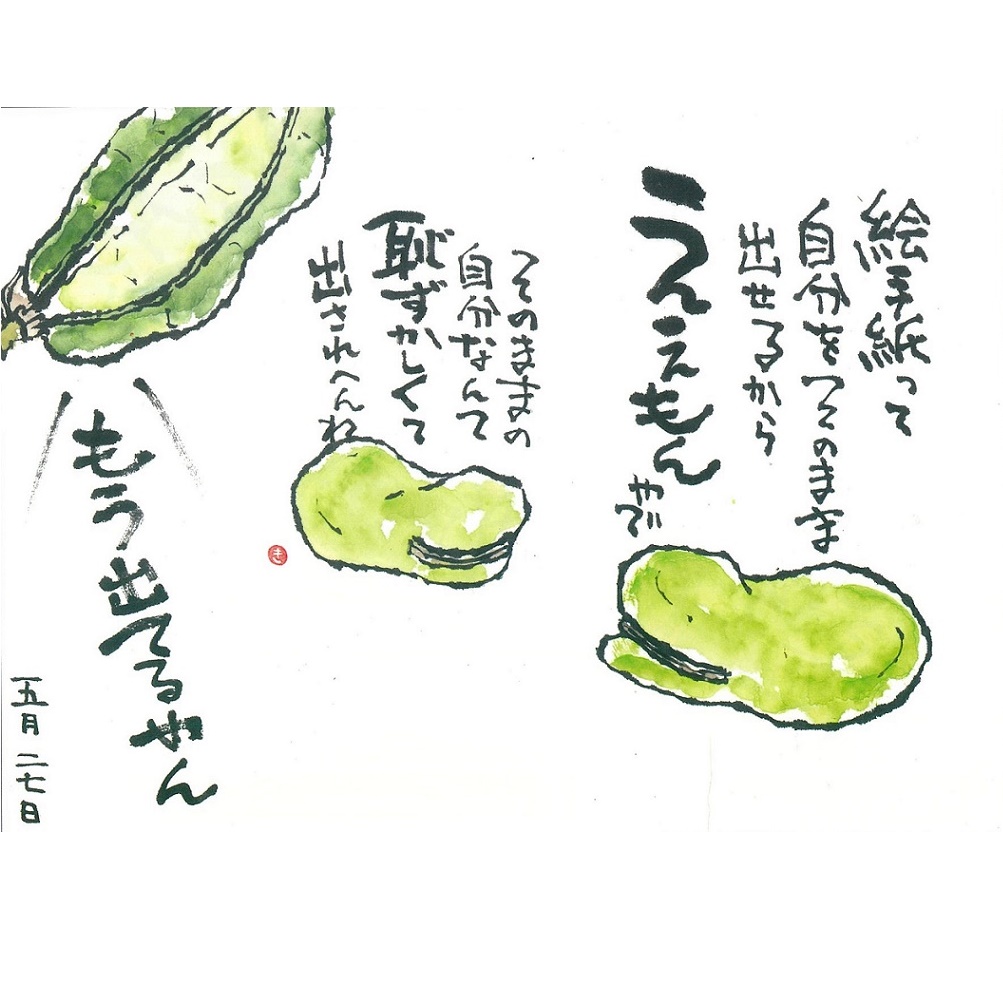 絵手紙って
自分をそのまま
出せるから
ええもん
やで
そのままの
自分なんて
恥ずかしくて
出されへんね
き
もう出てるやん
五月二七日